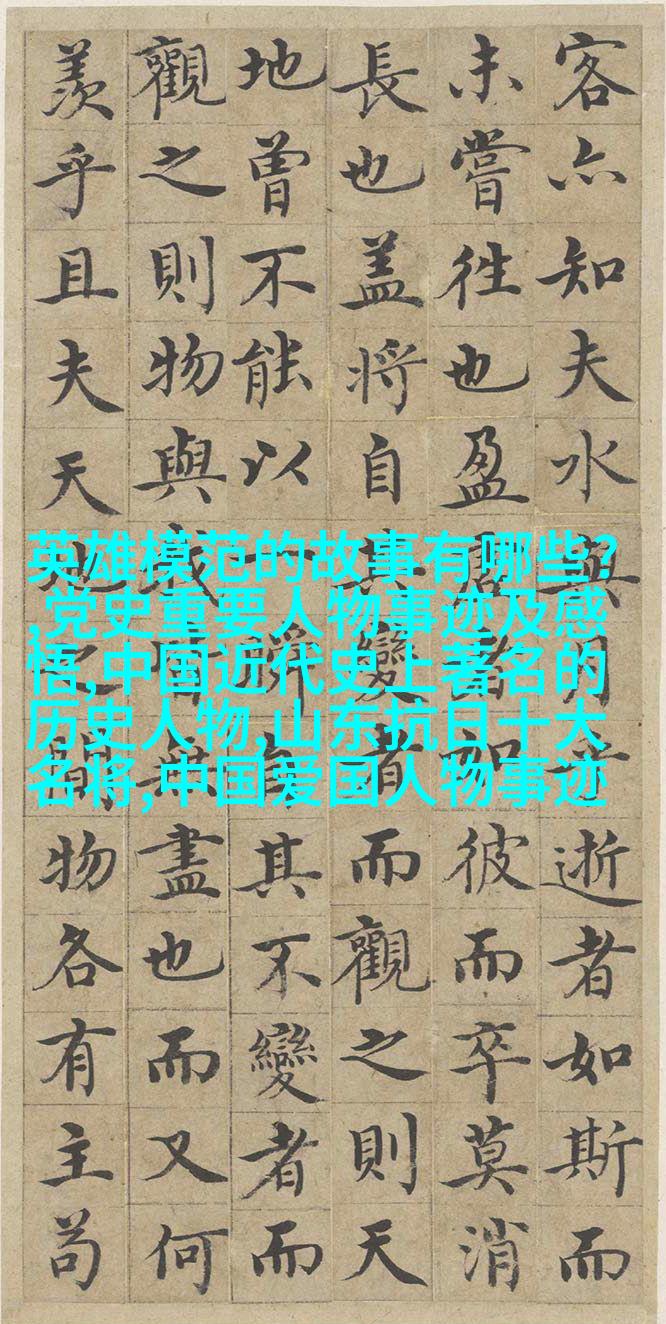 客亦知夫水與月乎逝者如斯而
未嘗往也盈虛者如彼而卒莫消
長也盖將自其變者而觀之則天
地曾不能以一瞬自其不變者而
觀之則物與我皆無盡也而又何
羨乎且夫天地之間物各有主苟
英雄模范的故事有哪些?
,党史重要人物事迹及感
悟,中国近代史上著名的
历史人物,山东抗日十大
名将,中国爱国人物事迹